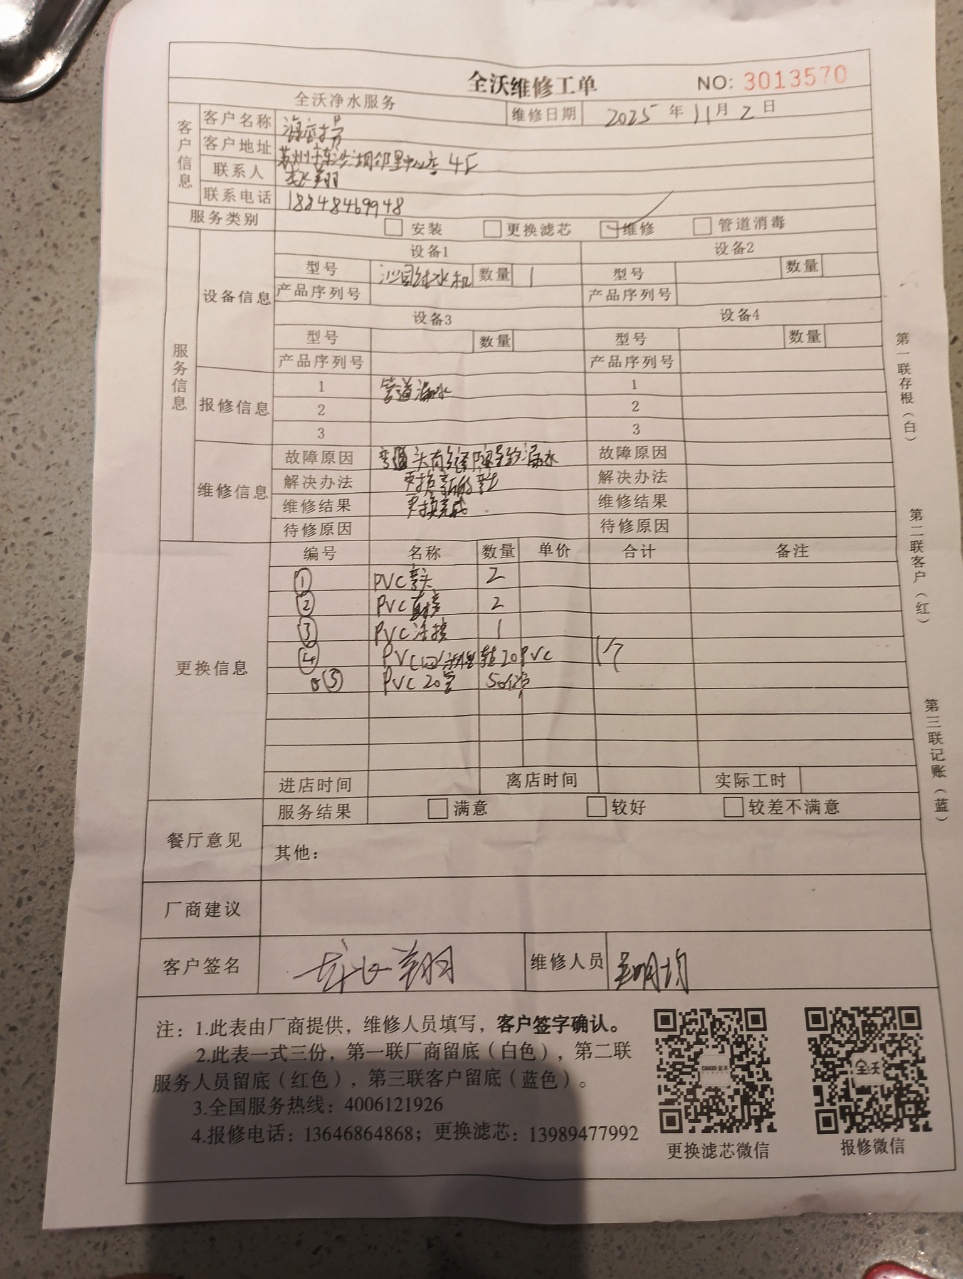 全沃维修工单
NO: 3013570
全沃净水服务 维修日期 2025 年 11 月 2 日
客户信息
客户名称
客户地址 苏州 4F
联系人
联系电话 18848469948
服务类别 安装 更换滤芯 维修 管道消毒
服务信息
设备信息
设备1 设备2
型号 净水机 数量 1 型号 数量
产品序列号 产品序列号
设备3 设备4
型号 数量 型号 数量
产品序列号 产品序列号
报修信息
1 管道漏水 1
2 2
3 3
维修信息
故障原因 漏水 故障原因
解决办法 更换新的弯头 解决办法
维修结果 更换完成 维修结果
待修原因 待修原因
更换信息
编号 名称 数量 单价 合计 备注
① PVC弯头 2
② PVC直接 2
③ PVC活接 1
④ PVC 20PVC 1个
⑤ PVC 20管
进店时间 离店时间 实际工时
餐厅意见
服务结果 满意 较好 较差不满意
其他：
厂商建议
客户签名 维修人员
注：1.此表由厂商提供，维修人员填写，客户签字确认。
2.此表一式三份，第一联厂商留底（白色），第二联
服务人员留底（红色），第三联客户留底（蓝色）。
3.全国服务热线：4006121926
4.报修电话：13646864868；更换滤芯：13989477992
全沃
更换滤芯微信 报修微信
第一联存根（白）
第二联客户（红）
第三联记账（蓝）